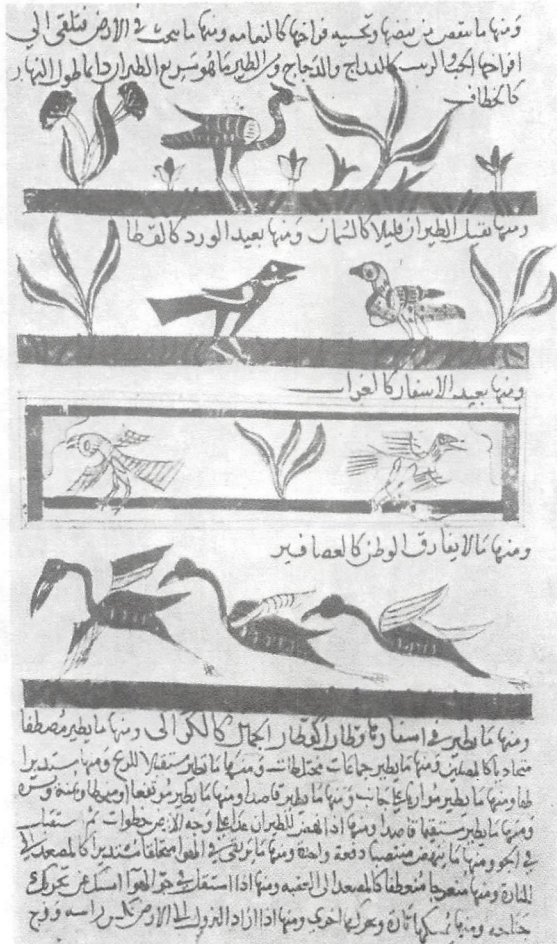 ومنها ما ينقص من بيضها وتحسيه فراخها كالنعامة ومنها ما يبحث في الارض فتلقى الى
افراخها الحب والربيب كالدراج والدجاج ومن الطير ما هو سريع الطيران دائما طول النهار
كالخطاف
ومنها ثقيل الطيران قليلا كالسمان ومنها بعيد الورد كالقطا
ومنها بعيد الاسفار كالغراب
ومنها ما لا يفارق الوطن كالعصافير
ومنها ما يطير في اسفاره قطارا كقطار الجمال كالكراكي ومنها ما يطير مصطفا
متحاذيا كالمصلين ومنها ما يطير جماعات مختلطات ومنها ما يطير مستقبلا للريح ومنها مستدبرا
لها ومنها ما يطير مواربا على جانب ومنها ما يطير قاصدا ومنها ما يطير مرتفعا ومنحطا ويمنة ويسرة
ومنها ما يطير مستقيما قاصدا ومنها اذا نهض للطيران عدا على وجه الارض خطوات ثم استقل
في الجو ومنها ما ينهض منتصبا دفعة واحدة ومنها ما يرتقي في الهوا محلقا مستديرا كالمصعد الى
المنارة ومنها منعرجا منعطفا كالمصعد الى العقبة ومنها اذا استقل في جو الهوا امسك عن تحريك
جناحيه ومنها يمسكها تارة ويحركها اخرى ومنها اذا اراد النزول الى الارض نكس راسه وزج